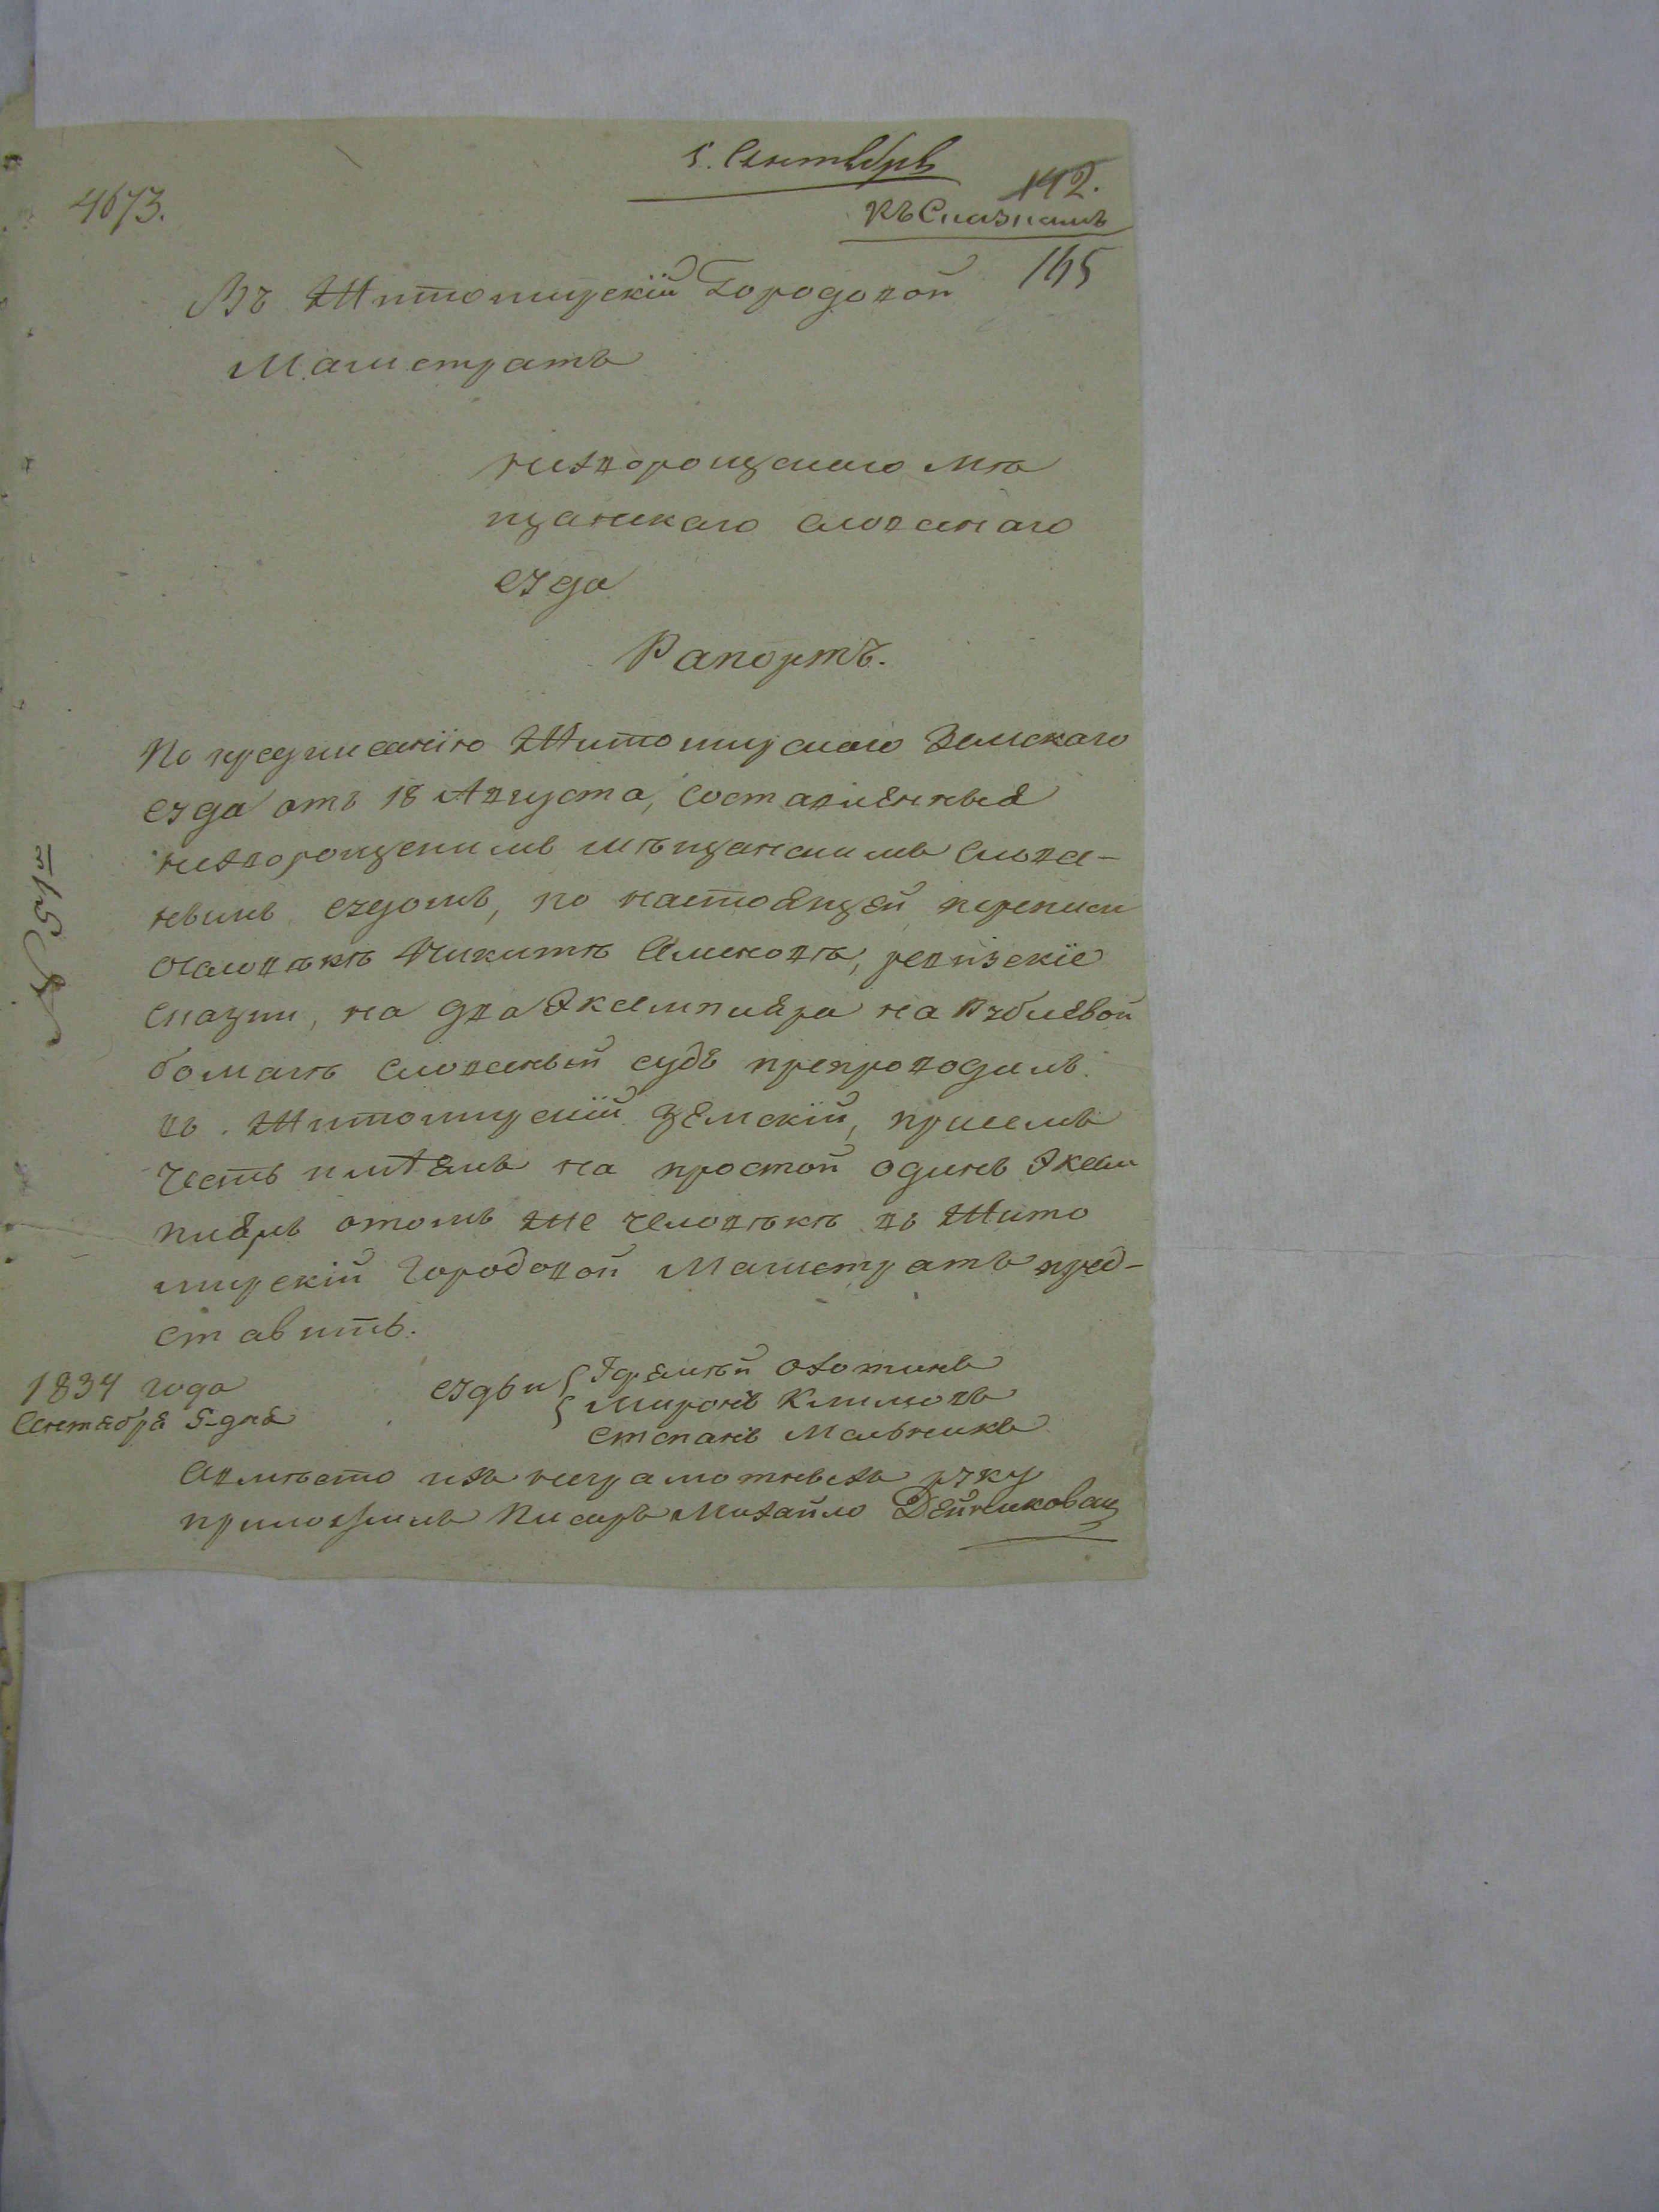 5. Сентября
4673.
142.
Къ Сказкамъ
165
Въ Житомирскій Городовой
Магистратъ
нихворощскаго Мѣ
щанскаго словеснаго
суда
Рапортъ.
По предписанію Житомирскаго Земскаго
суда отъ 18 Августа, составленныя
нихворощскимъ мѣщанскимъ слове-
нымъ судомъ, по настоящей переписи
Никитѣ ревизскіе
сказки, на два Экземпляра на
бомагѣ словесный судъ препроводилъ
въ Житомирскій Земскій, присемъ
Честь имѣемъ на простой одинъ Экзем
пляръ отомъ же человѣкѣ въ Жито
мирскій Городовой Магистратъ пред-
ставить.
1834 года
Сентября 5-дня
судьи
Миронъ Климовъ
Степанъ Мельникъ
Авмѣсто ихъ неграмотныхъ руку
приложилъ Писарь Михайло